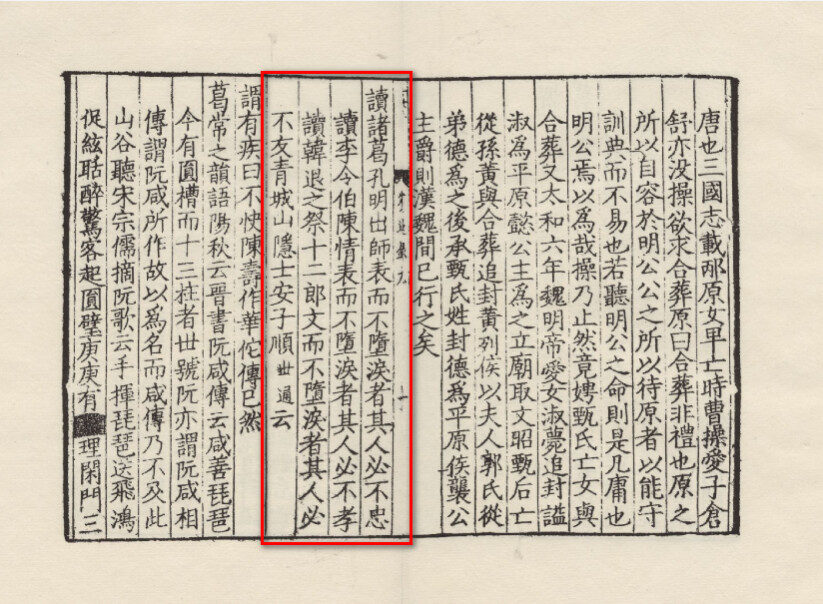 唐也三國志載邴原女早亡時曹操愛子倉
舒亦没操欲求合葬原曰合葬非禮也原之
所以自容於明公公之所以待原者以能守
訓典而不易也若聽明公之命則是凡庸也
明公焉以為哉操乃止然竟娉甄氏亡女與
合葬又太和六年魏明帝愛女淑薨追封謚
淑為平原懿公主為之立廟取文昭甄后亡
從孫黃與合葬追封黃列侯以夫人郭氏從
弟德為之後承甄氏姓封德為平原侯襲公
主爵則漢魏間已行之矣
讀諸葛孔明出師表而不墮淚者其人必不忠
讀李令伯陳情表而不墮淚者其人必不孝
讀韓退之祭十二郎文而不墮淚者其人必
不友青城山隱士安子順世通云
謂有疾曰不快陳壽作華佗傳已然
葛常之韻語陽秋云晉書阮咸傳云咸善琵琶
今有圓槽而十三柱者世號阮亦謂阮咸相
傳謂阮咸所作故以為名而咸傳乃不及此
山谷聽宋宗儒摘阮歌云手揮琵琶送飛鴻
促絃聒醉驚客起圓璧庚庚有理閑門三